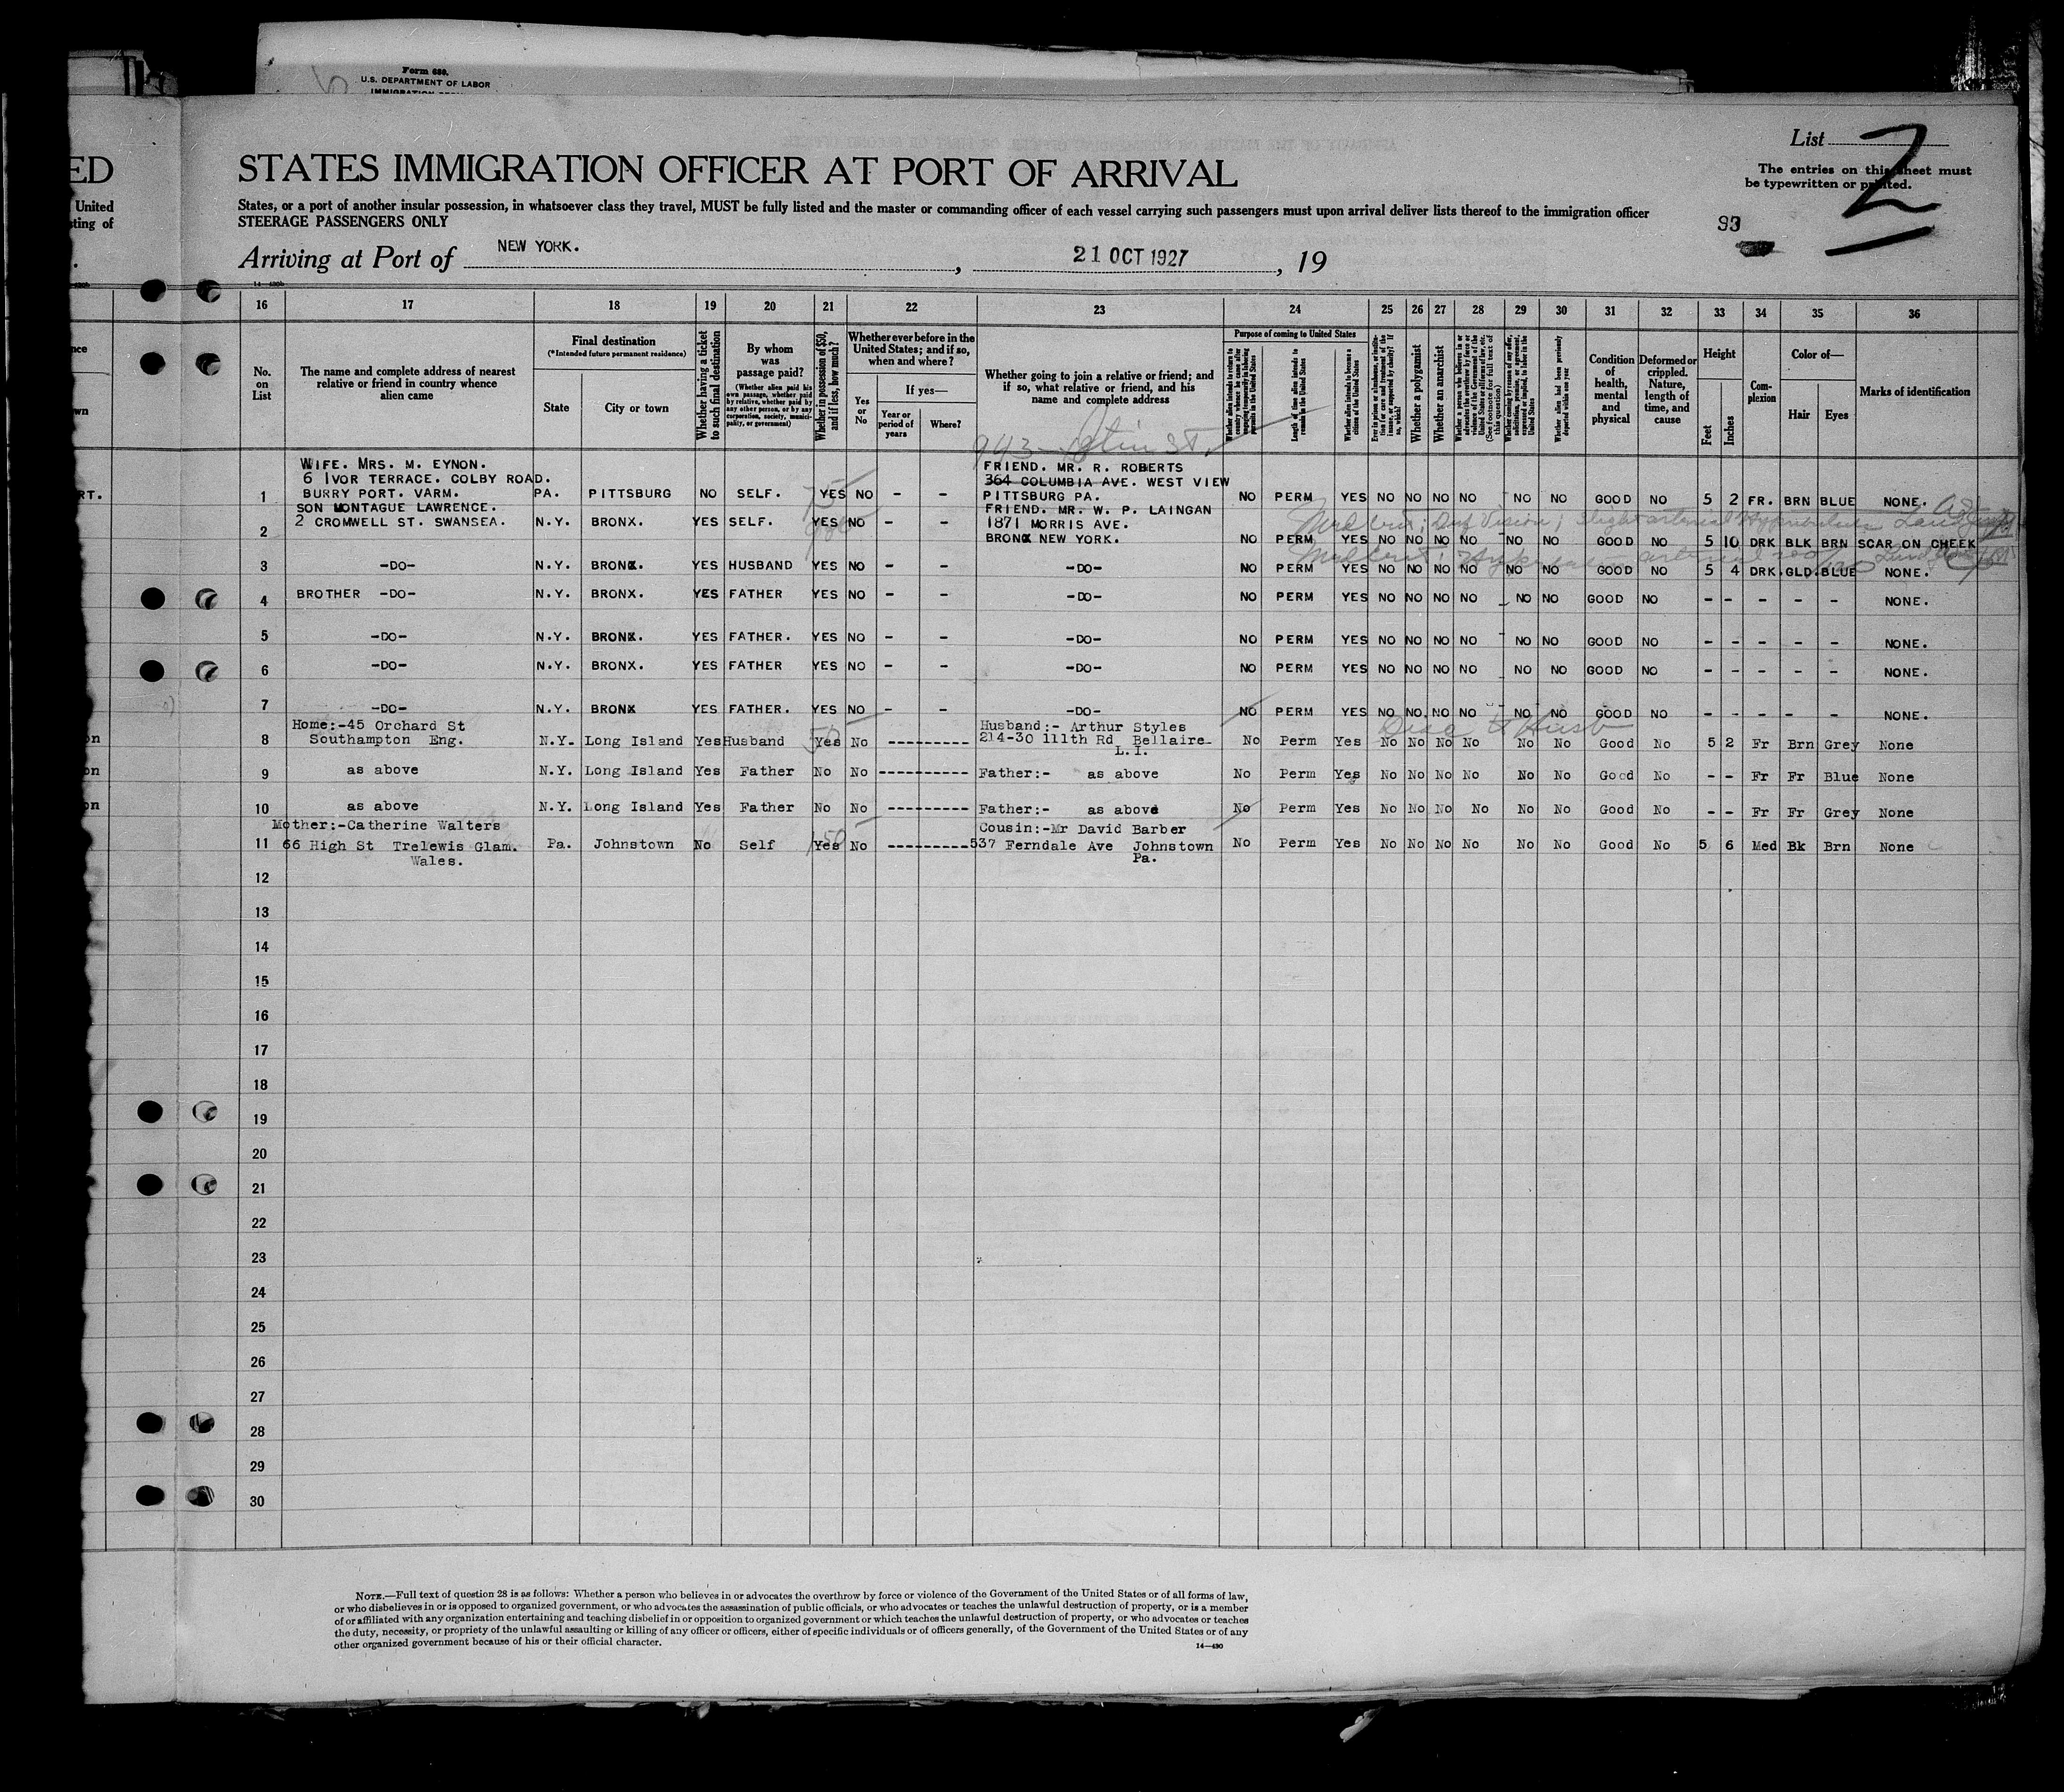 Form 630,
U.S. DEPARTMENT OF LABOR
ED
United
sting of
List 2
The entries on this sheet must
be typewritten or printed.
93
STATES IMMIGRATION OFFICER AT PORT OF ARRIVAL
States, or a port of another insular possession, in whatsoever class they travel, MUST be fully listed and the master or commanding officer of each vessel carrying such passengers must upon arrival deliver lists thereof to the immigration officer
STEERAGE PASSENGERS ONLY
Arriving at Port of NEW YORK. , 21 OCT 1927 , 19
16 17 18 19 20 21 22 23 24 25 26 27 28 29 30 31 32 33 34 35 36
No. on List
The name and complete address of nearest relative or friend in country whence alien came
Final destination
(*Intended future permanent residence)
State
City or town
Whether having a ticket to such final destination
By whom was passage paid?
(Whether alien paid his own passage, whether paid by relative, whether paid by any other person, or by any corporation, society, municipality, or government)
Whether in possession of $50, and if less, how much?
Whether ever before in the United States; and if so, when and where?
Yes or No
If yes—
Year or period of years
Where?
Whether going to join a relative or friend; and if so, what relative or friend, and his name and complete address
Purpose of coming to United States
Length of time alien intends to remain in the United States
Whether alien intends to become a citizen of the United States
Whether a polygamist
Whether an anarchist
Condition of health, mental and physical
Deformed or crippled. Nature, length of time, and cause
Height
Feet
Inches
Complexion
Color of—
Hair
Eyes
Marks of identification
943
WIFE. MRS. M. EYNON.
6 IVOR TERRACE. COLBY ROAD.
FRIEND. MR. R. ROBERTS
364 COLUMBIA AVE. WEST VIEW
1 BURRY PORT. VARM. PA. PITTSBURG NO SELF. YES NO - - PITTSBURG PA. NO PERM YES NO NO NO NO NO NO GOOD NO 5 2 FR. BRN BLUE NONE.
SON MONTAGUE LAWRENCE. FRIEND. MR. W. P. LAINGAN
2 2 CROMWELL ST. SWANSEA. N.Y. BRONX. YES SELF. YES NO - - 1871 MORRIS AVE.
BRONX NEW YORK. NO PERM YES NO NO NO NO NO NO GOOD NO 5 10 DRK BLK BRN SCAR ON CHEEK
3 -DO- N.Y. BRONX. YES HUSBAND YES NO - - -DO- NO PERM YES NO NO NO NO NO NO GOOD NO 5 4 DRK. GLD. BLUE NONE.
4 BROTHER -DO- N.Y. BRONX. YES FATHER YES NO - - -DO- NO PERM YES NO NO NO NO NO NO GOOD NO - - - - - NONE.
5 -DO- N.Y. BRONX. YES FATHER. YES NO - - -DO- NO PERM YES NO NO NO NO NO NO GOOD NO - - - - - NONE.
6 -DO- N.Y. BRONX. YES FATHER YES NO - - -DO- NO PERM YES NO NO NO NO NO NO GOOD NO - - - - - NONE.
7 -DO- N.Y. BRONX YES FATHER. YES NO - - -DO- NO PERM YES NO NO NO NO NO NO GOOD NO - - - - - NONE.
Home:-45 Orchard St Husband:- Arthur Styles
8 Southampton Eng. N.Y. Long Island Yes Husband Yes No ---------- 214-30 111th Rd Bellaire No Perm Yes No No No No No No Good No 5 2 Fr Brn Grey None
L.I.
9 as above N.Y. Long Island Yes Father No No ---------- Father:- as above No Perm Yes No No No No No No Good No - - Fr Fr Blue None
10 as above N.Y. Long Island Yes Father No No ---------- Father:- as above No Perm Yes No No No No No No Good No - - Fr Fr Grey None
Mother:-Catherine Walters Cousin:-Mr David Barber
11 66 High St Trelewis Glam. Pa. Johnstown No Self Yes No ---------- 537 Ferndale Ave Johnstown No Perm Yes No No No No No No Good No 5 6 Med Bk Brn None
Wales. Pa.
12
13
14
15
16
17
18
19
20
21
22
23
24
25
26
27
28
29
30
NOTE.—Full text of question 28 is as follows: Whether a person who believes in or advocates the overthrow by force or violence of the Government of the United States or of all forms of law,
or who disbelieves in or is opposed to organized government, or who advocates the assassination of public officials, or who advocates or teaches the unlawful destruction of property, or is a member
of or affiliated with any organization entertaining and teaching disbelief in or opposition to organized government or which teaches the unlawful destruction of property, or who advocates or teaches
the duty, necessity, or propriety of the unlawful assaulting or killing of any officer or officers, either of specific individuals or of officers generally, of the Government of the United States or of any
other organized government because of his or their official character.
14—430